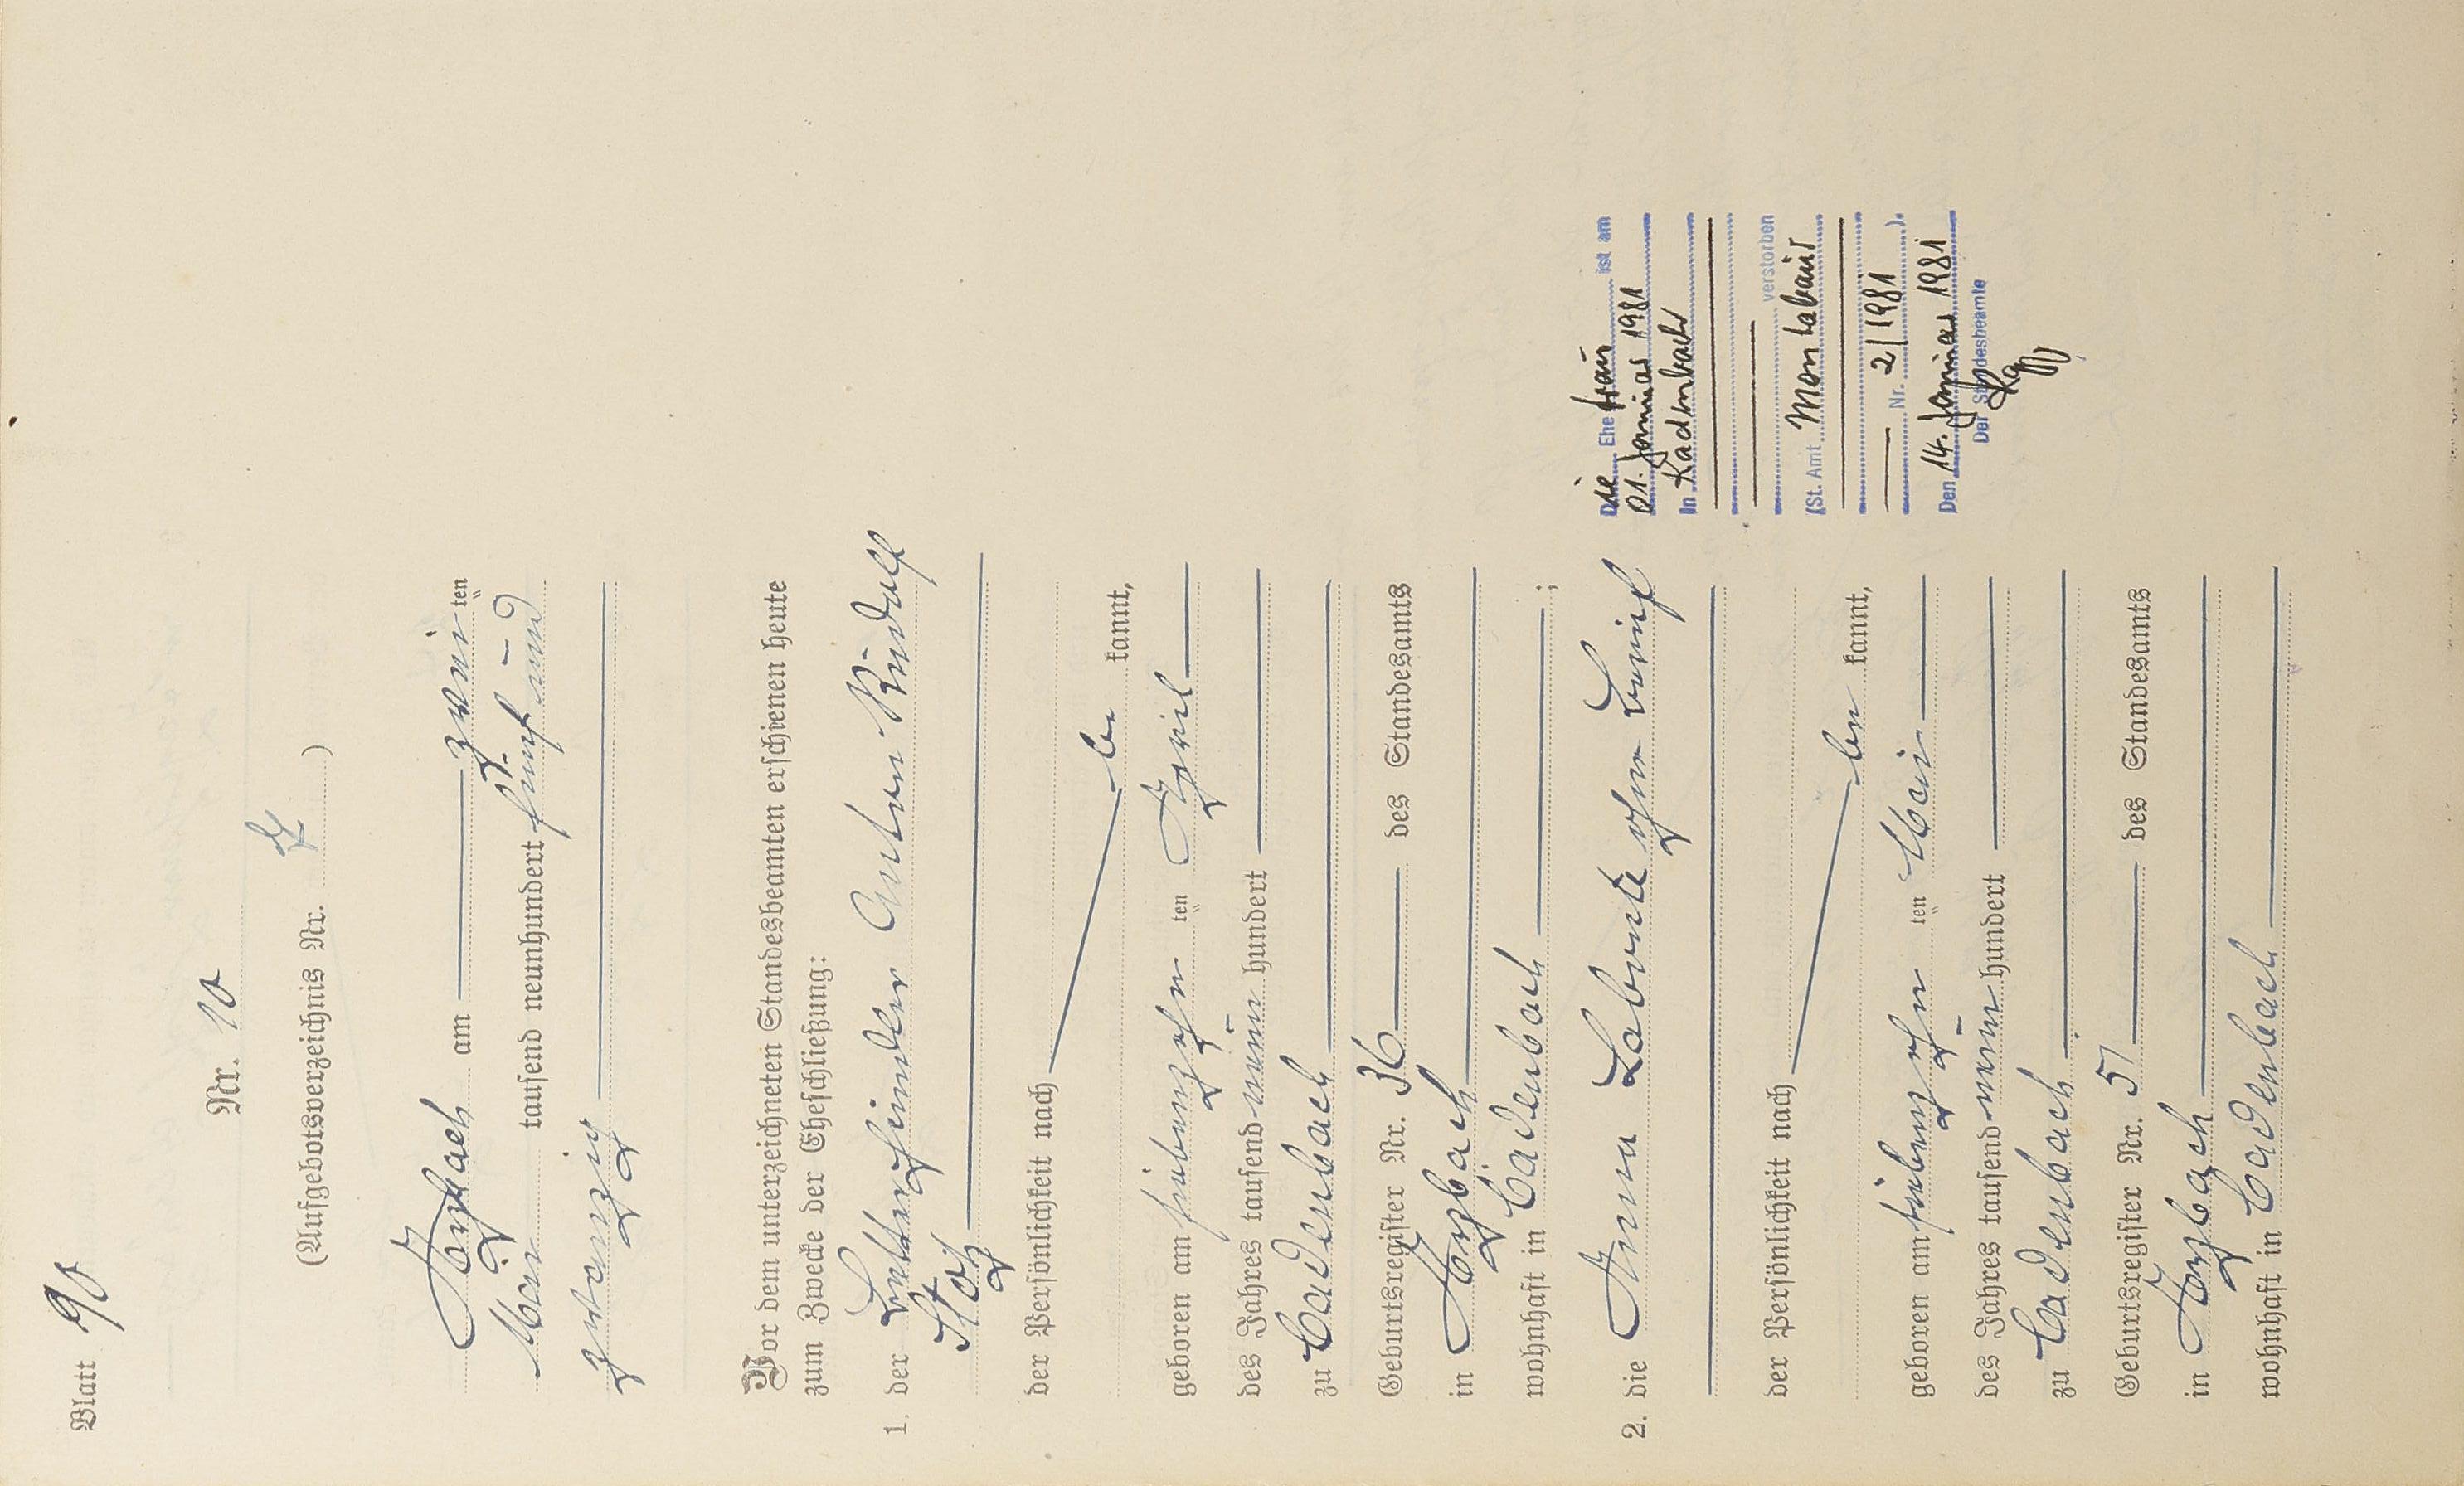 Blatt 90
Nr. 10
(Aufgebotsverzeichnis Nr. )
Arzbach am zwei ten
Mai tausend neunhundert fünf und
zwanzig
Vor dem unterzeichneten Standesbeamten erschienen heute
zum Zwecke der Eheschließung:
1. der Anton Rudolf
der Persönlichkeit nach
be kannt,
geboren am siebenzehn ten April
des Jahres tausend neun hundert
zu Cadenbach
Geburtsregister Nr. 36 des Standesamts
in Arzbach
wohnhaft in Cadenbach ;
2. die Anna Labonte ohne Beruf
der Persönlichkeit nach
be kannt,
geboren am siebenzehn ten Mai
des Jahres tausend neun hundert
zu Cadenbach
Geburtsregister Nr. 51 des Standesamts
in Arzbach
wohnhaft in Cadenbach
Die Ehefrau ist am
01. Januar 1981
In Kadenbach
verstorben
(St. Amt Montabaur
Nr. 2/1981 ).
Den 14. Januar 1981
Der Standesbeamte